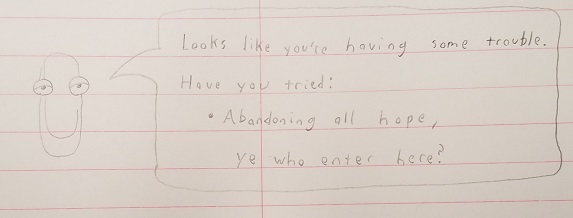 Looks like you're having some trouble.
Have you tried:
• Abandoning all hope,
ye who enter here?